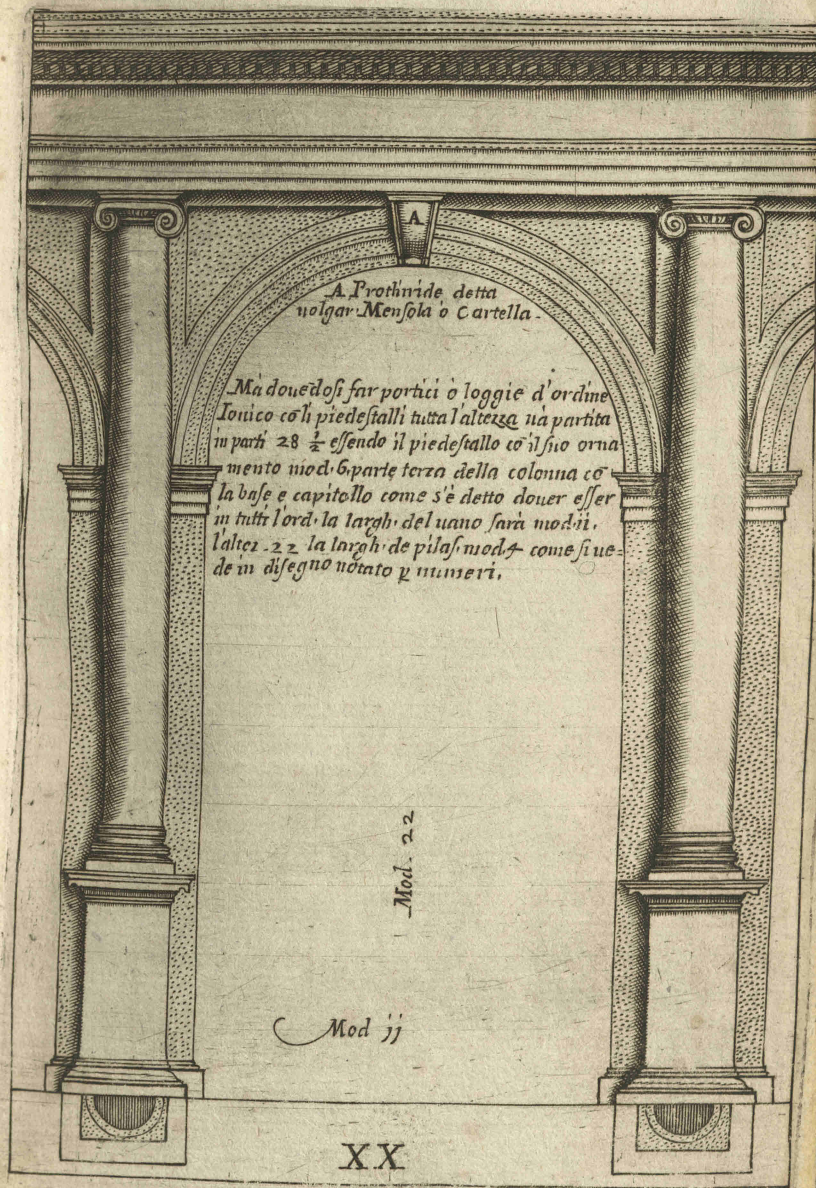 A
A Prothiride detta
uolgar. Mensola ò Cartella.
Mà douēdosi far portici ò loggie d'ordine
Ionico cō li piedestalli tutta l'altezza uà partita
in parti 28 1/2 essendo il piedestallo cō il suo orna
mento mod. 6. parte terza della colonna cō
la base e capitello come s'è detto douer esser
in tutti l'ord. la largh. del uano sarà mod. ii.
l'altez. 22 la largh. de pilas. mod 4 come si ue=
de in disegno notato ꝑ numeri.
Mod. 22
Mod ij
XX